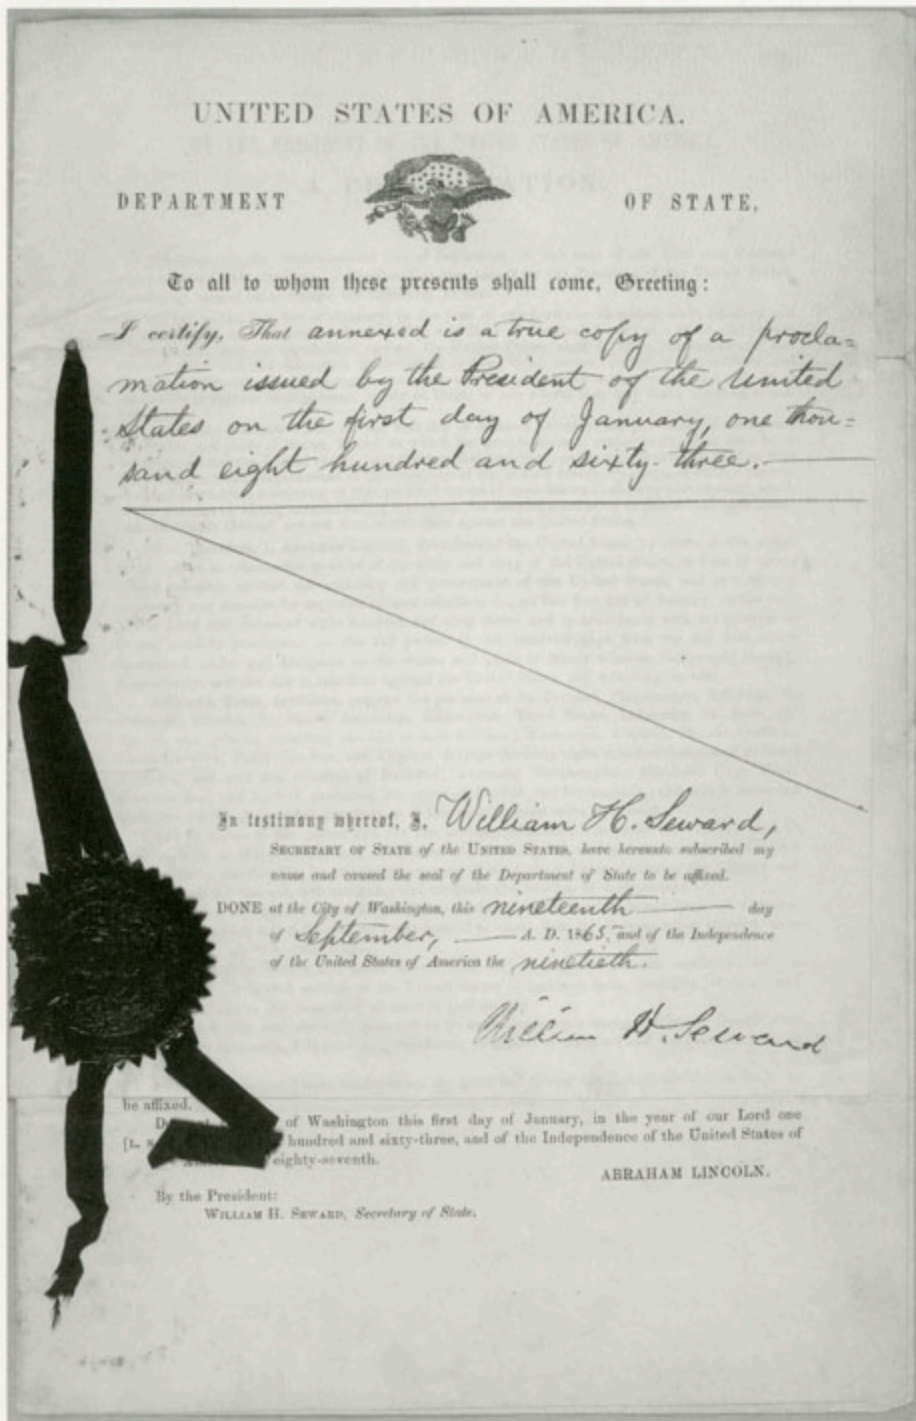 UNITED STATES OF AMERICA.
DEPARTMENT OF STATE.
To all to whom these presents shall come, Greeting:
I certify, That annexed is a true copy of a procla=
mation issued by the President of the United
States on the first day of January, one thou=
sand eight hundred and sixty-three.
In testimony whereof, I, William H. Seward,
SECRETARY OF STATE of the UNITED STATES, have hereunto subscribed my
name and caused the seal of the Department of State to be affixed.
DONE at the City of Washington, this nineteenth day
of September, A. D. 1865, and of the Independence
of the United States of America the ninetieth.
William H. Seward
be affixed.
of Washington this first day of January, in the year of our Lord one
[L. hundred and sixty-three, and of the Independence of the United States of
eighty-seventh.
ABRAHAM LINCOLN.
By the President:
WILLIAM H. SEWARD, Secretary of State.